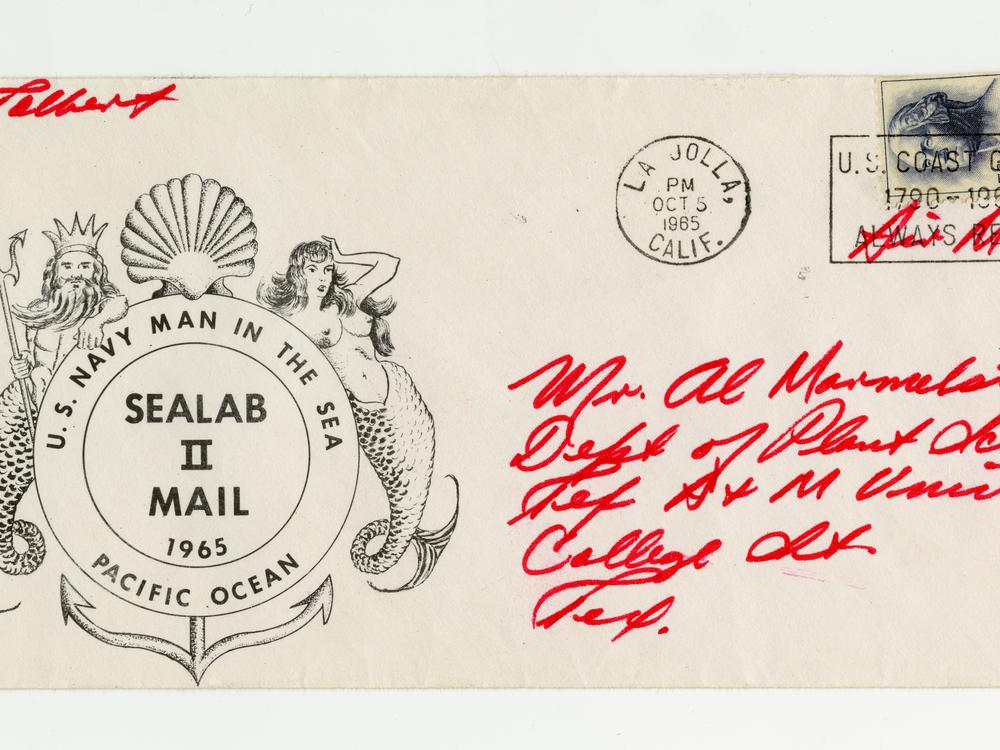 Talbert
U.S. NAVY MAN IN THE SEA
SEALAB
II
MAIL
1965
PACIFIC OCEAN
LA JOLLA,
PM
OCT 5
1965
CALIF.
U.S. COAST
1790-19
ALWAYS
Air
Mr. Al
Dept of Plant Sc
Tex A + M Univ
College St.
Tex.